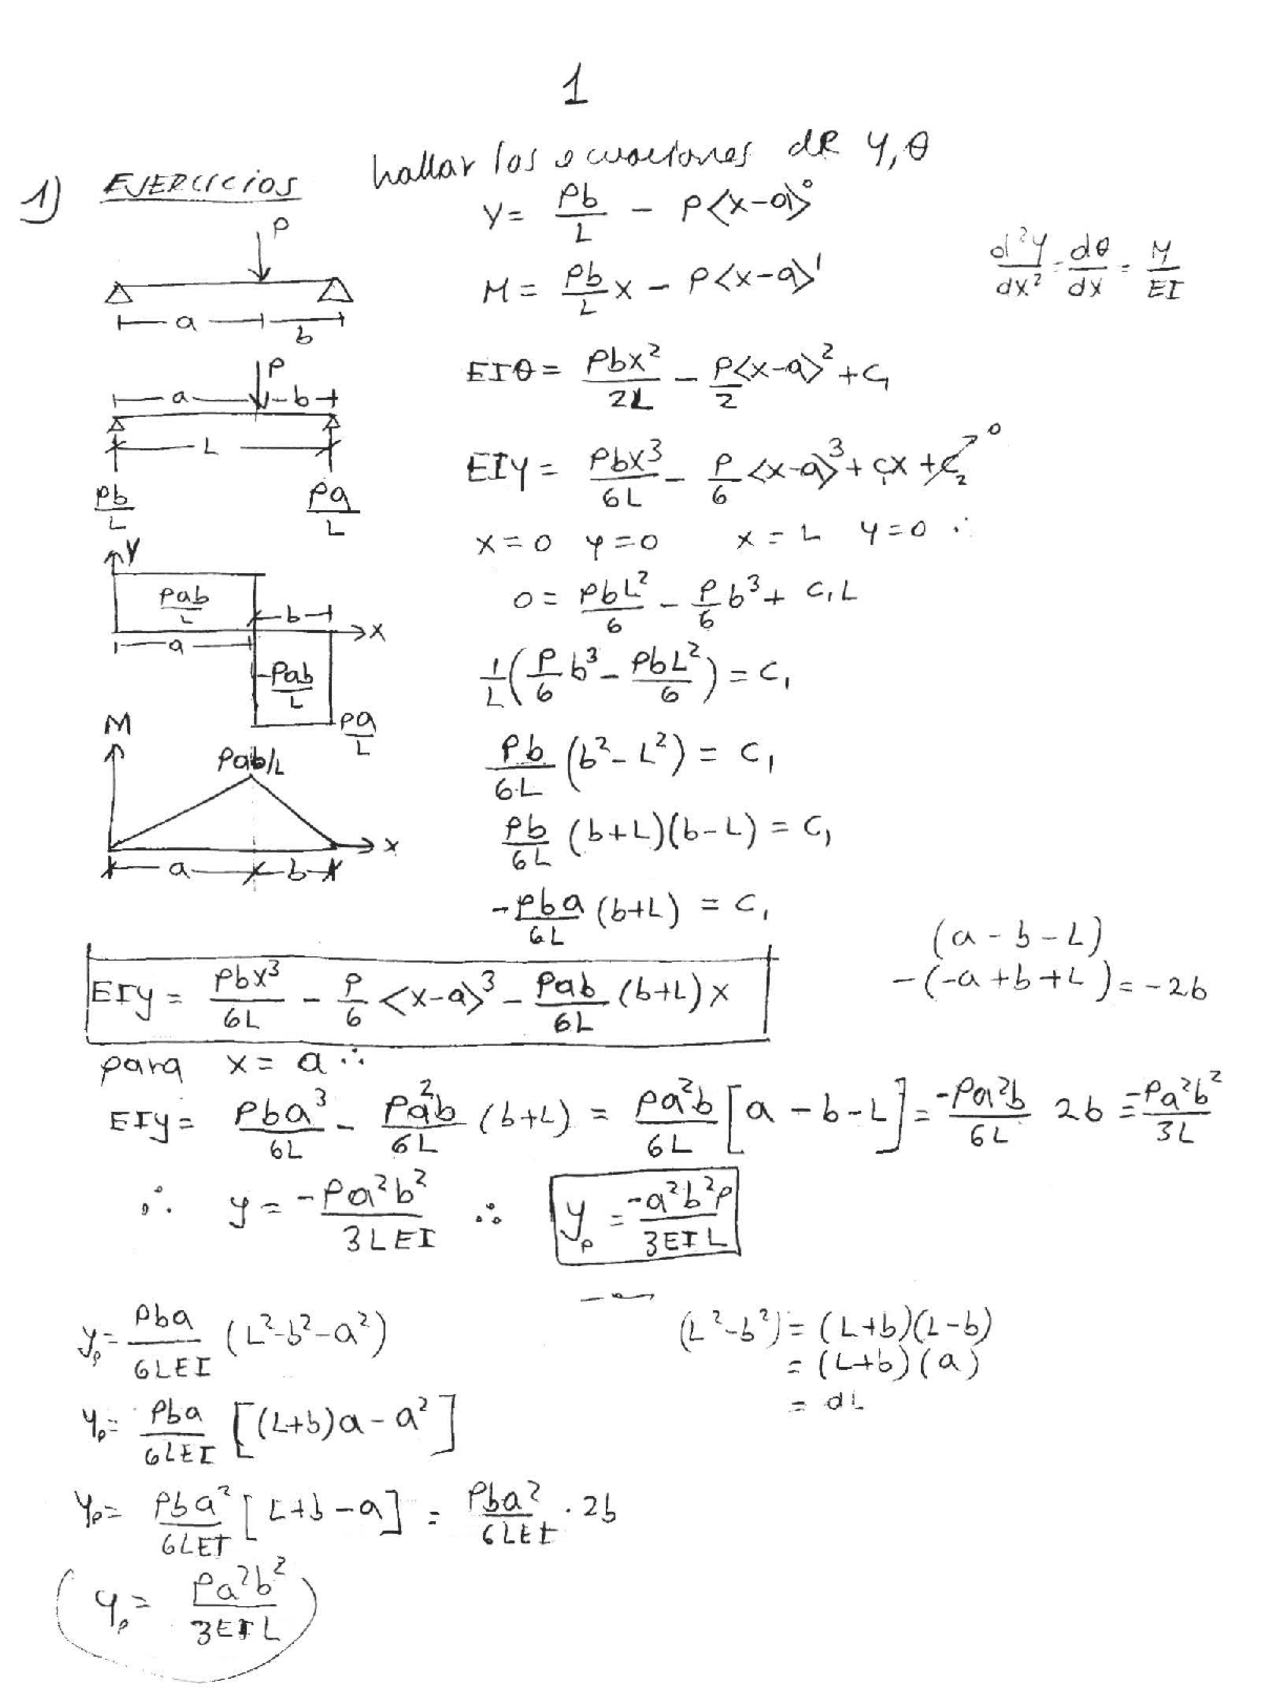 1
hallar las ecuaciones de y, θ
1) EJERCICIOS
P
a
b
P
a
b
L
Pb/L
Pa/L
V
Pab/L
b
x
a
-Pab/L
Pa/L
M
Pab/L
x
a
b
V = Pb/L - P<x-a>⁰
M = Pb/L x - P<x-a>¹
d²y/dx² = dθ/dx = M/EI
EIθ = Pbx²/2L - P/2<x-a>² + C₁
EIy = Pbx³/6L - P/6 <x-a>³ + C₁x + C₂ ↗ 0
x = 0 y = 0 x = L y = 0 ∴
0 = PbL²/6 - P/6 b³ + C₁L
1/L (P/6 b³ - PbL²/6) = C₁
Pb/6L (b² - L²) = C₁
Pb/6L (b+L)(b-L) = C₁
-Pba/6L (b+L) = C₁
EIy = Pbx³/6L - P/6 <x-a>³ - Pab/6L (b+L) x
(a - b - L)
-(-a + b + L) = -2b
para x = a ∴
EIy = Pba³/6L - Pa²b/6L (b+L) = Pa²b/6L [a - b - L] = -Pa²b/6L 2b = -Pa²b²/3L
∴ y = -Pa²b²/3LEI ∴ yₚ = -a²b²P/3EIL
yₚ = Pba/6LEI (L²-b²-a²)
(L²-b²) = (L+b)(L-b)
= (L+b)(a)
= aL
yₚ = Pba/6LEI [(L+b)a - a²]
yₚ = Pba²/6LEI [L+b-a] = Pba²/6LEI · 2b
yₚ = Pa²b²/3EIL